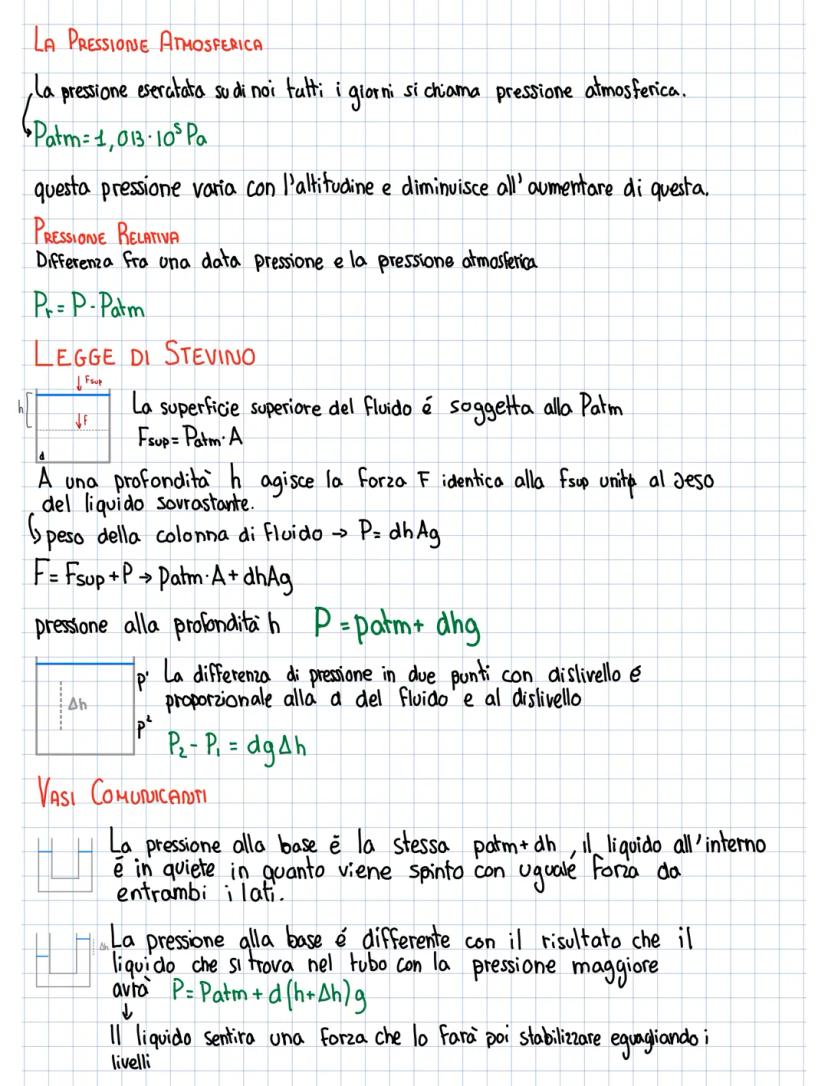 LA PRESSIONE ATMOSFERICA
La pressione esercitata su di noi tutti i giorni si chiama pressione atmosferica.
Patm=1,013·10⁵ Pa
questa pressione varia con l'altitudine e diminuisce all'aumentare di questa.
PRESSIONE RELATIVA
Differenza fra una data pressione e la pressione atmosferica
Pr = P-Patm
LEGGE DI STEVINO
↓ Fsup
h
↓F
d
La superficie superiore del fluido é soggetta alla Patm
Fsup= Patm·A
A una profondità h agisce la forza F identica alla fsup unita al peso
del liquido sovrastante.
↳ peso della colonna di fluido → P= dhAg
F= Fsup+P → patm·A+dhAg
pressione alla profondità h P=patm+ dhg
Δh
p'
p²
La differenza di pressione in due punti con dislivello é
proporzionale alla d del fluido e al dislivello
P₂-P₁ = dgΔh
VASI COMUNICANTI
La pressione alla base ē la stessa patm+dh, il liquido all'interno
ē in quiete in quanto viene spinto con uguale forza da
entrambi i lati.
Δh
La pressione alla base é differente con il risultato che il
liquido che si trova nel tubo con la pressione maggiore
avrà P=Patm+d(h+Δh)g
↓
Il liquido sentira una forza che lo farà poi stabilizzare eguagliando i
livelli